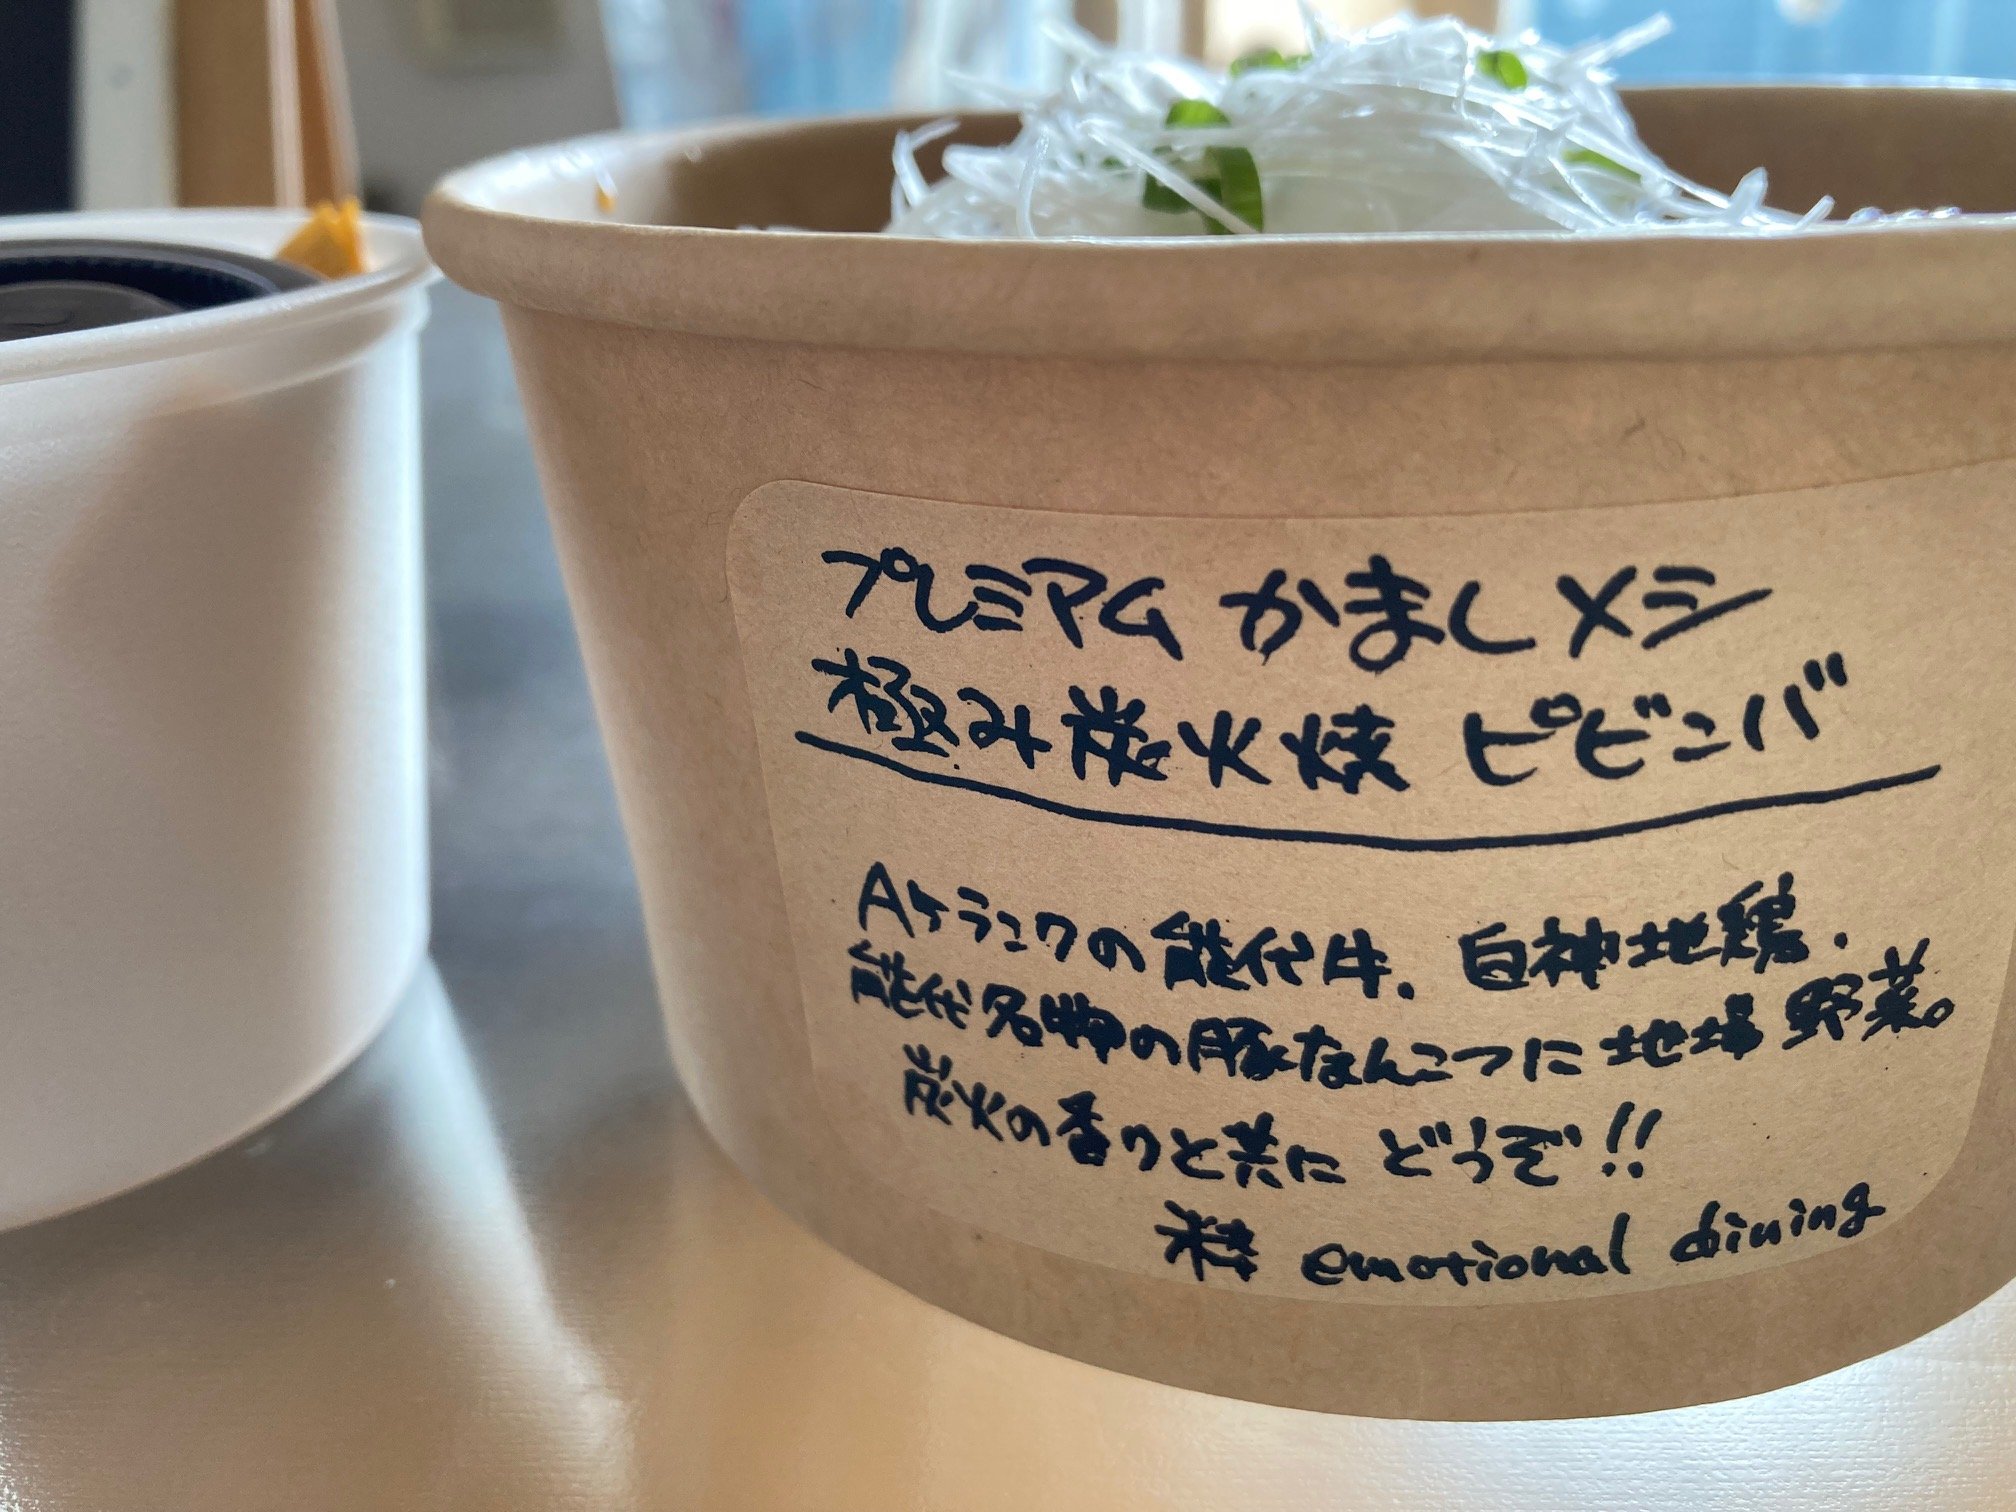 プレミアム かましメシ
極み炭火焼 ピビンバ
Aケランクの能代牛．白神地鶏．
能代名物の豚なんこつに地場野菜。
炭火の香りと共に どうぞ!!
粋 emotional dining